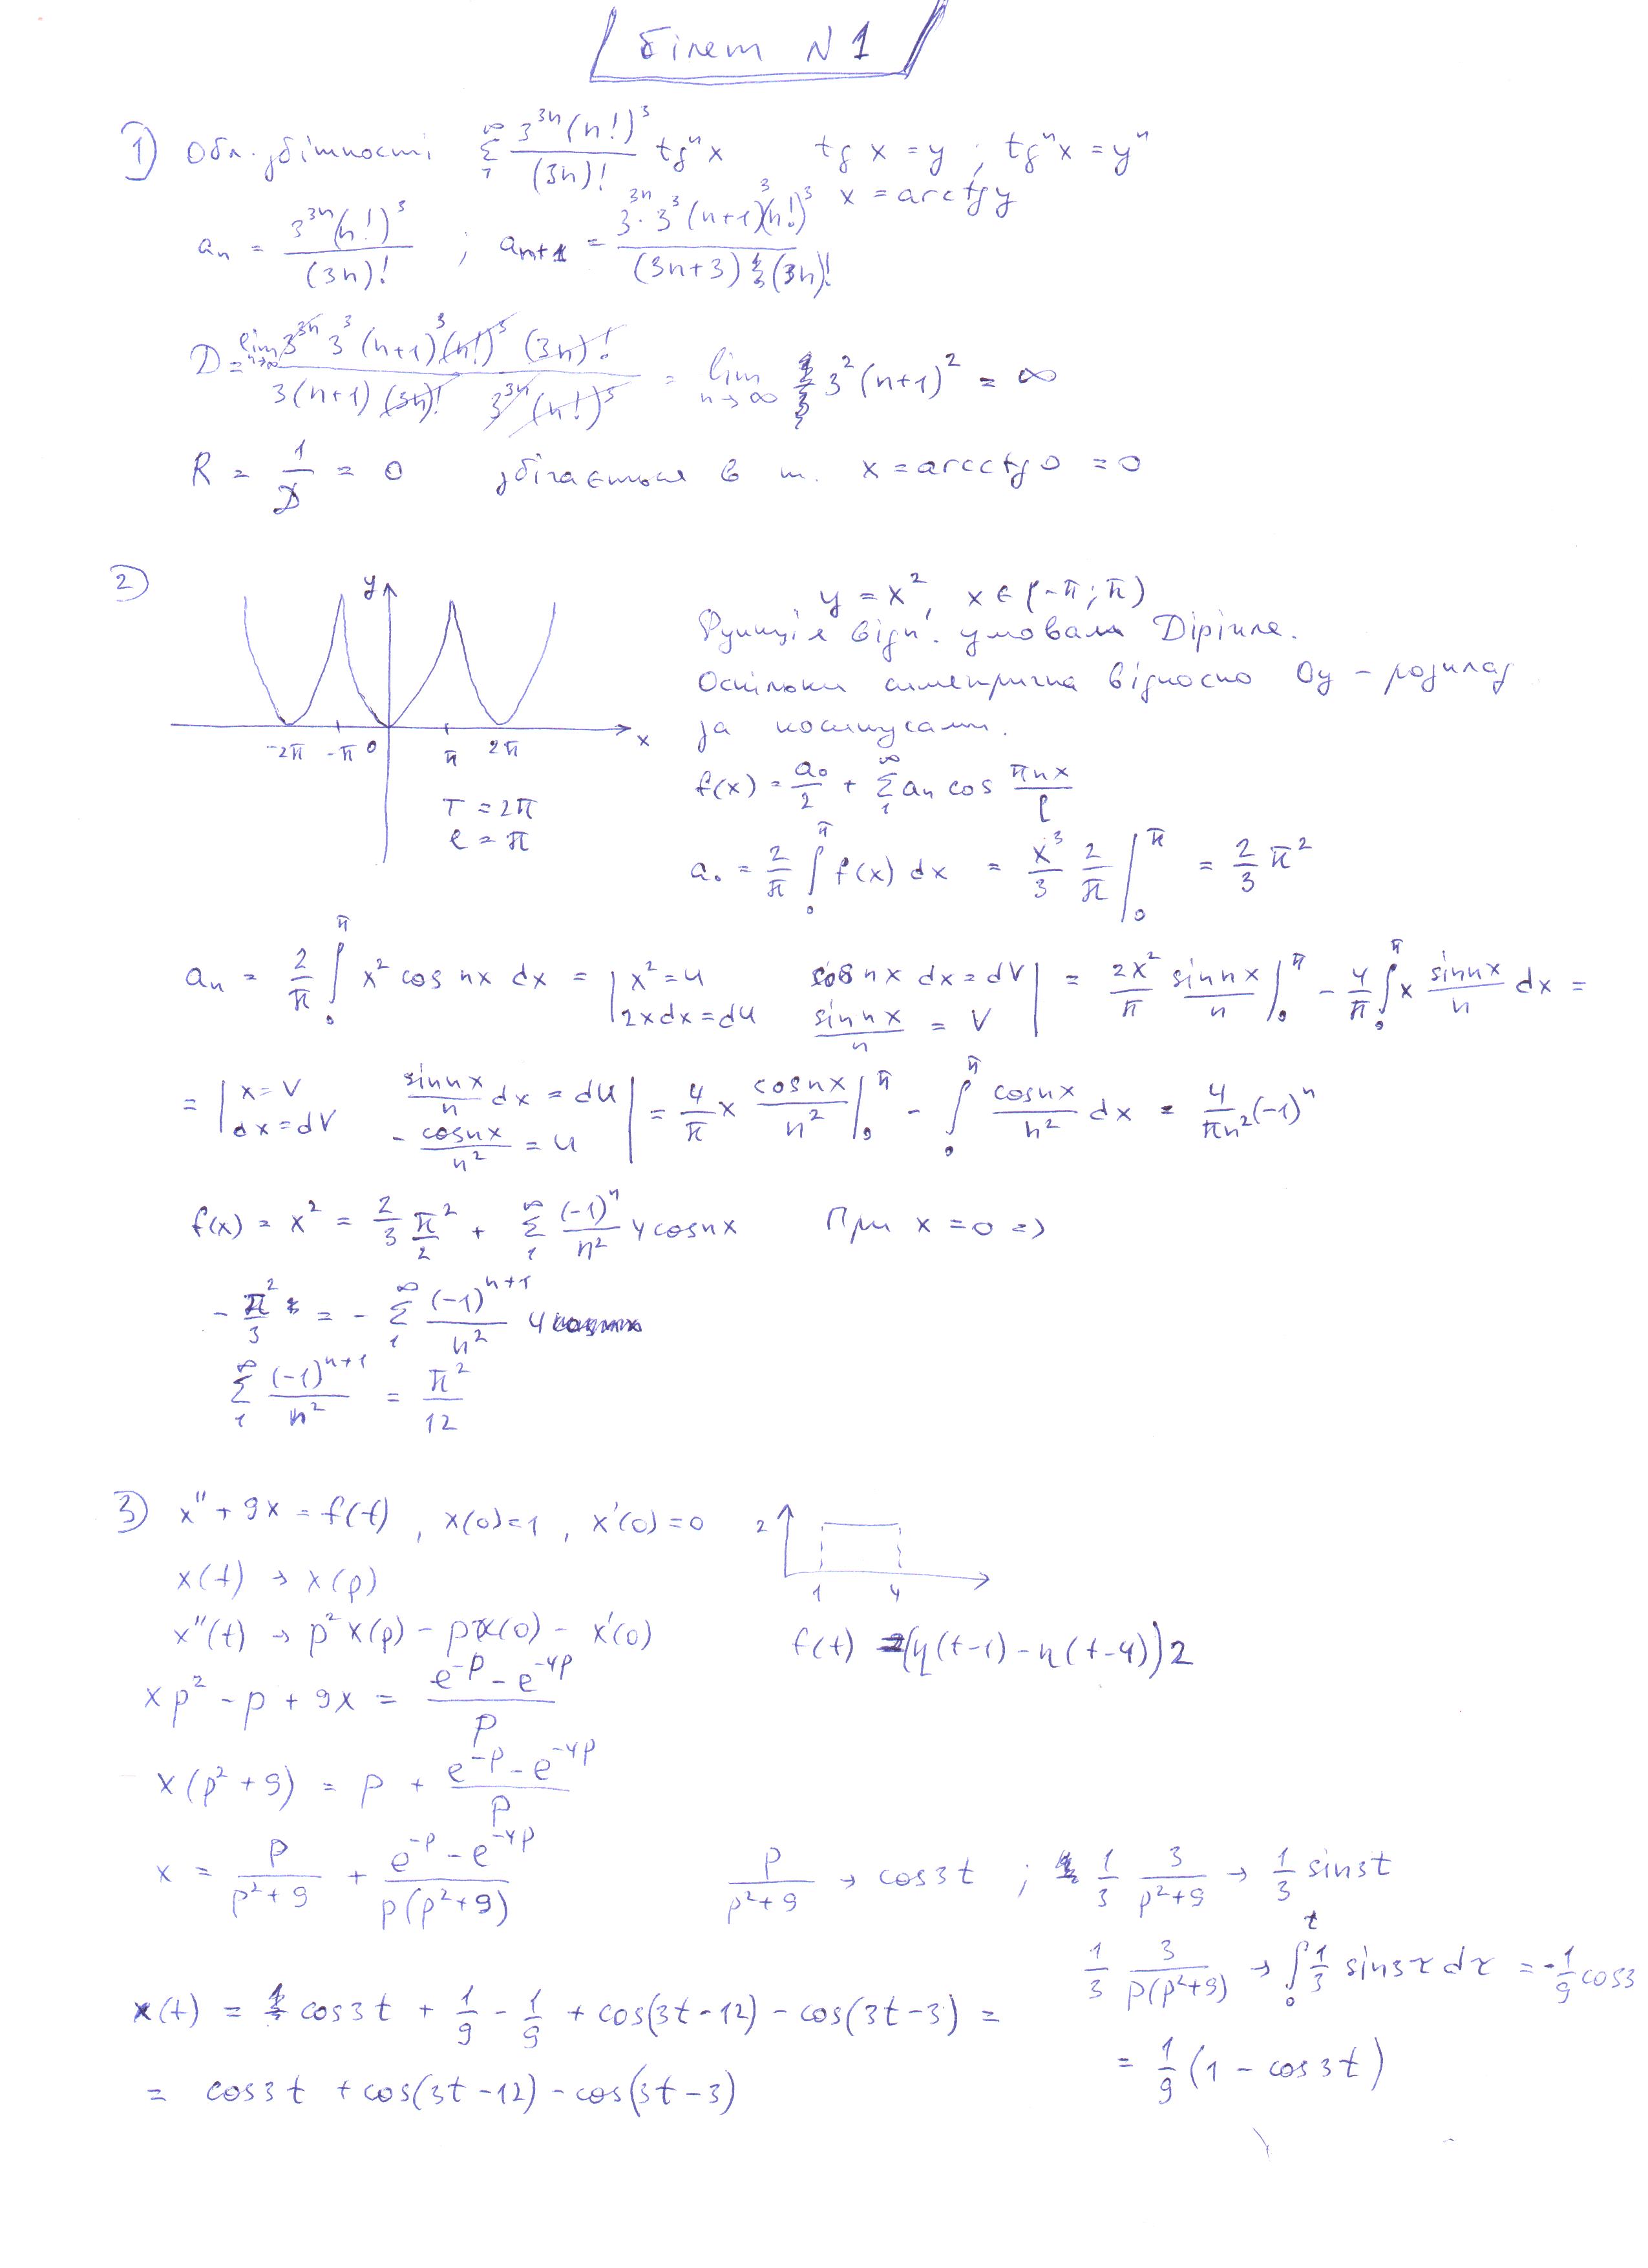 Білет N 1
1) Обл. збіжності ∑₁^∞ 3^{3n}(n!)^3/(3n)! tgⁿx tg x = y ; tgⁿx = yⁿ
x = arctg y
aₙ = 3^{3n}(n!)^3/(3n)! ; aₙ₊₁ = 3^{3n}·3^3(n+1)^3(n!)^3/(3n+3)(3n)!
D = lim_{n→∞} 3^{3n} 3^3 (n+1)^3 (n!)^3 (3n)!/3(n+1)(3n)! 3^{3n}(n!)^3 = lim_{n→∞} 3^2(n+1)^2 = ∞
R = 1/D = 0 збігається в т. x = arcctg 0 = 0
2) y = x², x ∈ (-π; π)
Функція відп. умовам Діріхле.
Оскільки симетрична відносно Oy – розклад
за косинусами.
y x -2π -π 0 π 2π
T = 2π
ℓ = π
f(x) = a₀/2 + ∑₁^∞ aₙ cos πnx/ℓ
a₀ = 2/π ∫₀^π f(x) dx = x³/3 2/π |₀^π = 2/3 π²
aₙ = 2/π ∫₀^π x² cos nx dx = | x² = u cos nx dx = dV | = 2x²/π sin nx/n |₀^π - 4/π ∫₀^π x sin nx/n dx =
2xdx = du sin nx/n = V
= | x = V sin nx/n dx = du | = 4/π x cos nx/n² |₀^π - ∫₀^π cos nx/n² dx = 4/πn² (-1)ⁿ
dx = dV - cos nx/n² = u
f(x) = x² = 2/3 π²/2 + ∑₁^∞ (-1)ⁿ/n² 4 cos nx При x = 0 =>
- π²/3 = - ∑₁^∞ (-1)^{n+1}/n² 4
∑₁^∞ (-1)^{n+1}/n² = π²/12
3) x'' + 9x = f(t), x(0)=1, x'(0)=0
2 1 4
x(t) → x(p)
x''(t) → p²x(p) - px(0) - x'(0)
f(t) = (η(t-1) - η(t-4))2
xp² - p + 9x = e^{-p} - e^{-4p}/p
x(p²+9) = p + e^{-p} - e^{-4p}/p
x = p/p²+9 + e^{-p} - e^{-4p}/p(p²+9) p/p²+9 → cos3t ; 1/3 3/p²+9 → 1/3 sin3t
1/3 3/p(p²+9) → ∫₀^t 1/3 sin3τ dτ = -1/9 cos3
= 1/9 (1 - cos3t)
x(t) = cos3t + 1/9 - 1/9 + cos(3t-12) - cos(3t-3) =
= cos3t + cos(3t-12) - cos(3t-3)